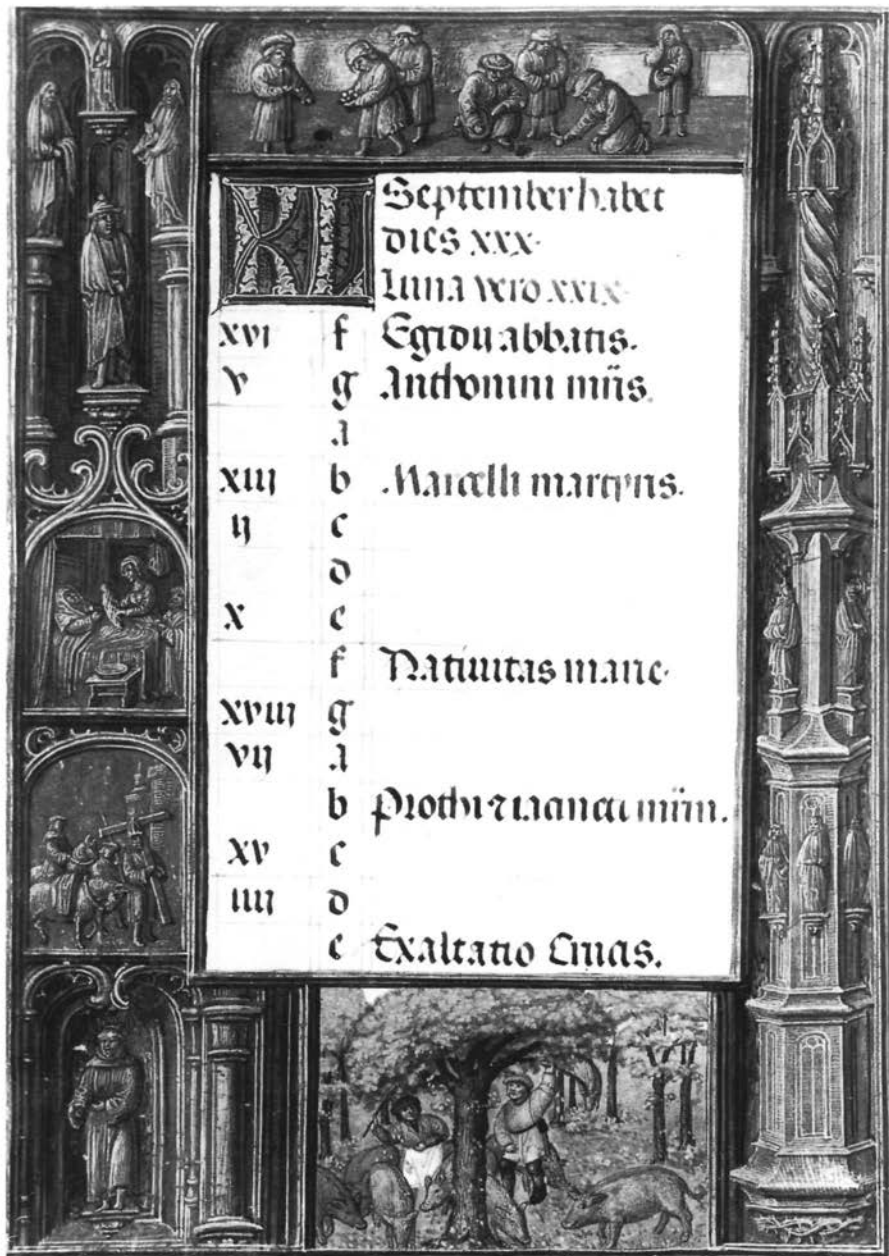 KL September habet
dies xxx.
Luna vero xxix.
xvj f Egidij abbatis.
v g Anthonini mr̃is.
a
xiij b Marcelli martyris.
ij c
d
x e
f Natiuitas marie.
xviij g
vij a
b Prothi ⁊ iacincti mr̃im.
xv c
iiij d
e Exaltatio Crucis.